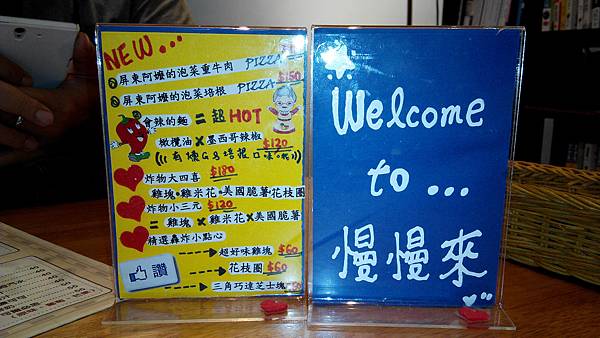 NEW...
屏東阿嬤的泡菜重牛肉 PIZZA
屏東阿嬤的泡菜培根 PIZZA $150
會辣的麵 = 超HOT
橄欖油 X 墨西哥辣椒 $120
炸物大四喜 $180
雞塊.雞米花.美國脆薯.花枝圈
炸物小三元 $120
= 雞塊 X 雞米花 X 美國脆薯
精選轟炸小點心
超好味雞塊 $60
花枝圈 $60
讚
三角巧達芝士塊
Welcome
to...
慢慢來